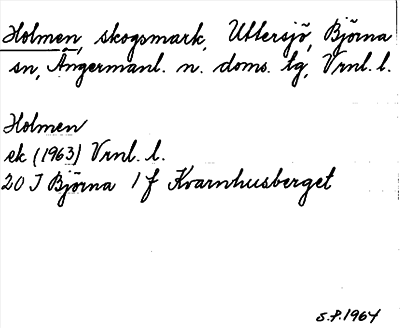 Holmen, skogsmark, Uttersjö, Björna
sn, Ångermanl. n. doms. lg, Vrnl. l.
Holmen
ek (1963) Vrnl. l.
20 I Björna 1 f Kvarnhusberget
S.P. 1964